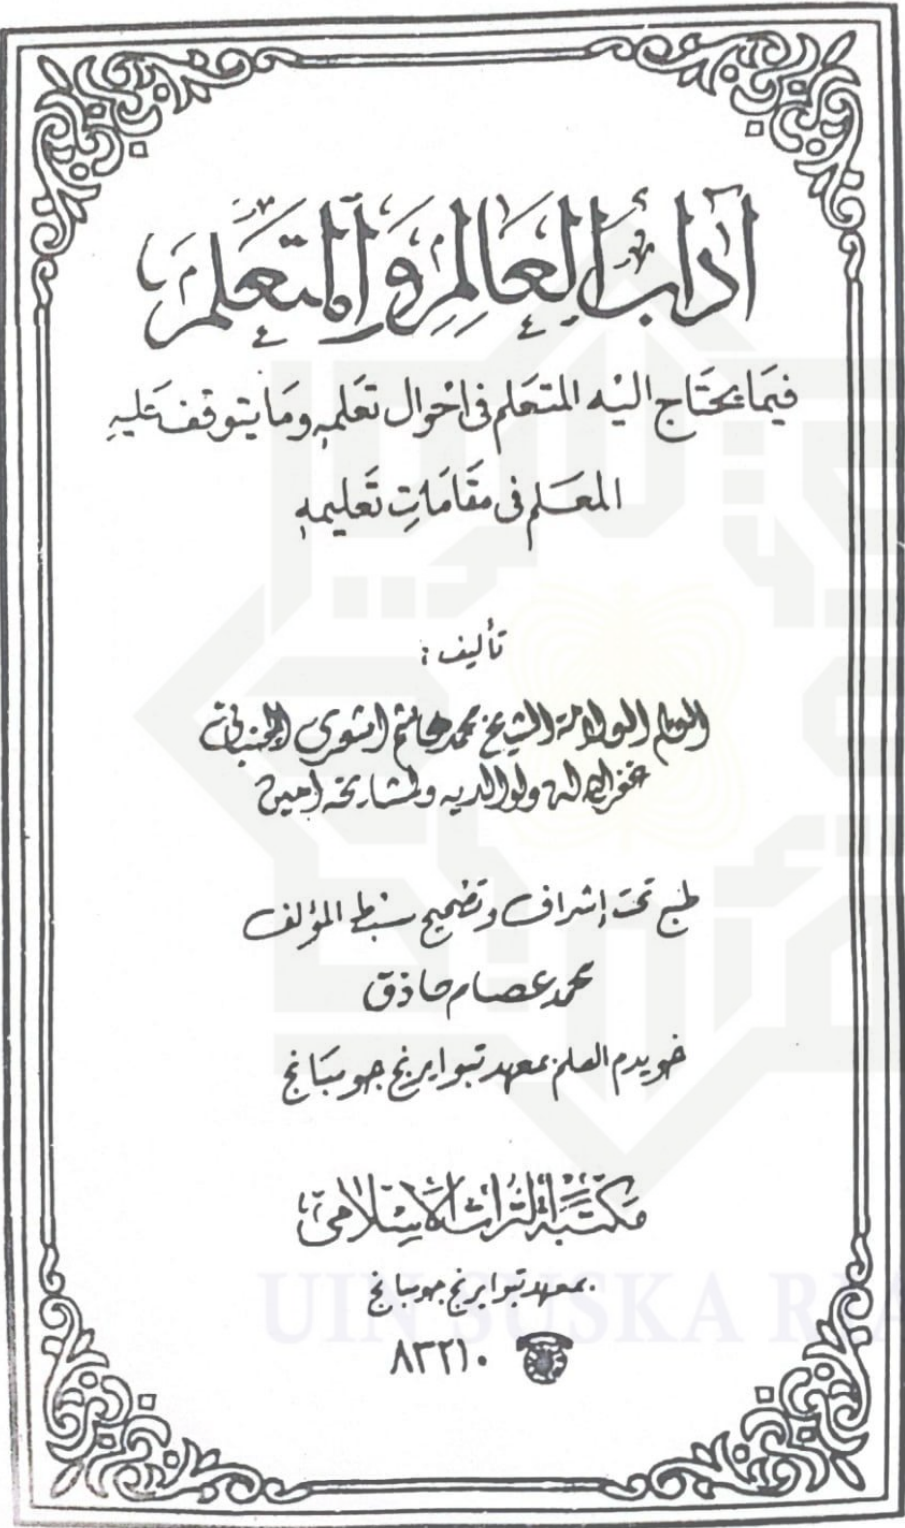 آدَابُ الْعَالِمِ وَالْمُتَعَلِّمِ
فيمَا يحتَاج اليْه المتعَلم في احْوال تعَلمهِ ومَا يتوقف عَليهِ
المعَلم في مقَامَاتِ تعَليمهِ
تأليف :
العالم العلامة الشيخ محمد هاشم اشعري الجنباني
غفر الله له ولوالديه ولمشايخه آمين
طبع تحت إشراف وتصحيح سبط المؤلف
محمد عصام حاذق
خويدم العلم بمعهد تبوايرنج جومبَانج
مَكتَبَة التُّراث الإِسْلَامي
بمعهد تبوايرنج جومبانج
٨٣٢١٠
UIN SUSKA R